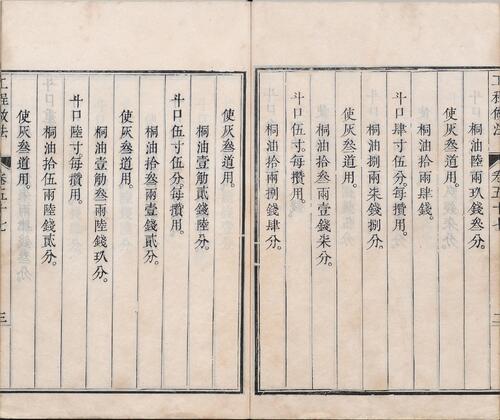 工程做法
卷五十七
二
桐油拾兩陸錢叁分。
使灰叁道用。
桐油拾兩肆錢。
斗口肆寸伍分。每攢用。
桐油捌兩柒錢捌分。
使灰叁道用。
桐油拾叁兩壹錢柒分。
斗口伍寸每攢用。
桐油拾兩捌錢肆分。
使灰叁道用。
桐油壹觔貳錢陸分。
斗口伍寸伍分。每攢用。
桐油拾叁兩壹錢貳分。
使灰叁道用。
桐油壹觔叁兩陸錢玖分。
斗口陸寸每攢用。
桐油拾伍兩陸錢貳分。
使灰叁道用。
工程做法
卷五十七
三